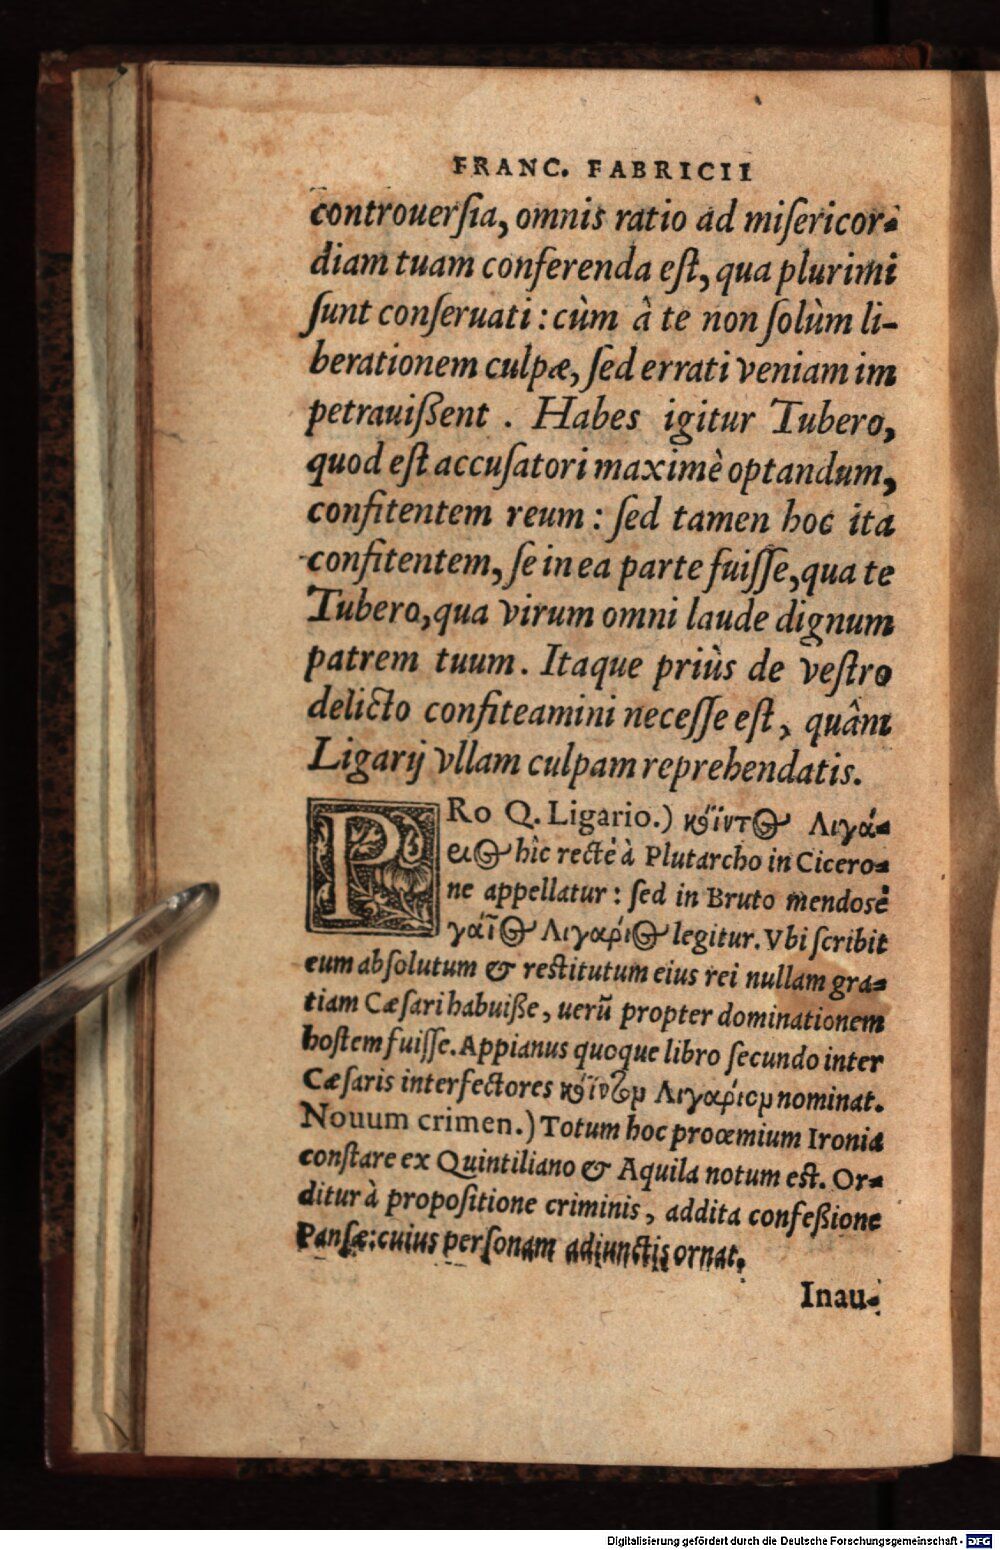 FRANC. FABRICII
controuerſia, omnis ratio ad miſericor-
diam tuam conferenda eſt, qua plurimi
ſunt conſeruati : cùm â te non ſolùm li-
berationem culpæ, ſed errati veniam im
petrauißent . Habes igitur Tubero,
quod eſt accuſatori maximè optandum,
confitentem reum : ſed tamen hoc ita
confitentem, ſe in ea parte fuiſſe, qua te
Tubero, qua virum omni laude dignum
patrem tuum. Itaque priùs de veſtro
delicto confiteamini neceſſe eſt, quâm
Ligarij vllam culpam reprehendatis.
PRo Q. Ligario.) κόϊντος Λιγά-
ειος hîc rectè à Plutarcho in Cicero-
ne appellatur : ſed in Bruto mendosè
γάϊος Λιγάριος legitur. Vbi ſcribit
eum abſolutum & reſtitutum eius rei nullam gra-
tiam Cæſari habuiße, uerũ propter dominationem
hoſtem fuiſſe. Appianus quoque libro ſecundo inter
Cæſaris interfectores κόϊντον Λιγάριον nominat.
Nouum crimen.) Totum hoc proœmium Ironia
conſtare ex Quintiliano & Aquila notum eſt. Or-
ditur à propoſitione criminis, addita confeßione
Panſæ: cuius perſonam adiunctis ornat.
Inau-
Digitalisierung gefördert durch die Deutsche Forschungsgemeinschaft - DFG